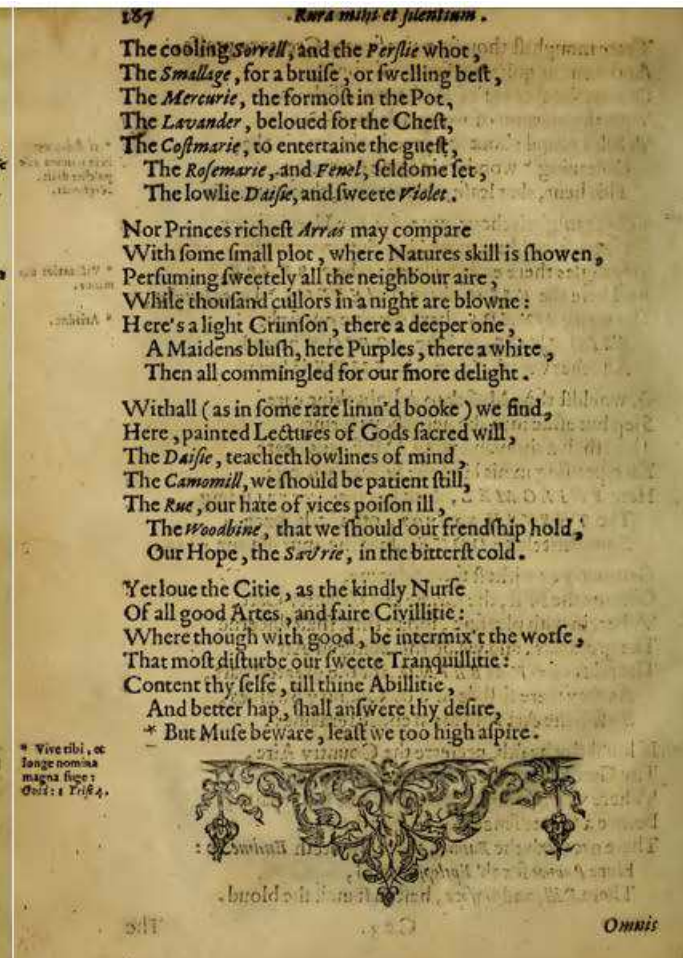 187 Rura mihi et silentium.
The cooling Sorrell, and the Perslie whot,
The Smallage, for a bruiſe, or ſwelling beſt,
The Mercurie, the formoſt in the Pot,
The Lavander, beloued for the Cheſt,
The Coſtmarie, to entertaine the gueſt,
The Roſemarie, and Fenel, ſeldome ſet,
The lowlie Daiſie, and ſweete Violet.
Nor Princes richeſt Arras may compare
With ſome ſmall plot, where Natures skill is ſhowen,
Perfuming ſweetely all the neighbour aire,
While thouſand cullors in a night are blowne:
Here's a light Crimſon, there a deeper one,
A Maidens bluſh, here Purples, there a white,
Then all commingled for our more delight.
Withall (as in ſome rare limn'd booke) we find,
Here, painted Lectures of Gods ſacred will,
The Daiſie, teacheth lowlines of mind,
The Camomill, we ſhould be patient ſtill,
The Rue, our hate of vices poiſon ill,
The Woodbine, that we ſhould our frendſhip hold,
Our Hope, the Sav'rie, in the bitterſt cold.
Yet loue the Citie, as the kindly Nurſe
Of all good Artes, and faire Civillitie:
Where though with good, be intermix't the worſe,
That moſt diſturbe our ſweete Tranquillitie:
Content thy ſelfe, till thine Abillitie,
And better hap, ſhall anſwere thy deſire,
* But Muſe beware, leaſt we too high aſpire.
* Vive tibi, et
longe nomina
magna fuge:
Ovid: 1 Triſt 4.
Omnis